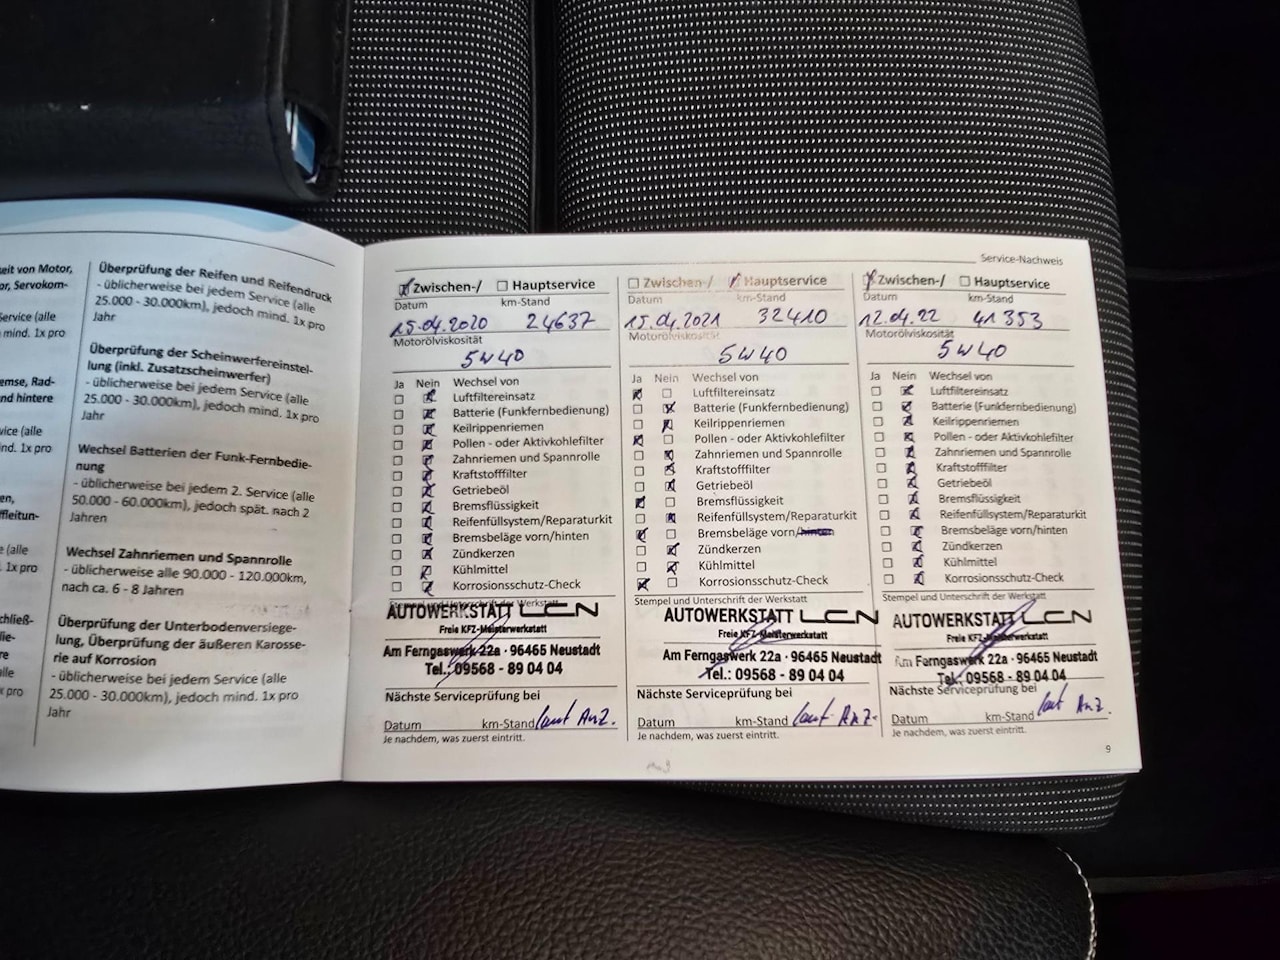 eit von Motor,
or, Servokom-
Service (alle
mind. 1x pro
emse, Rad-
nd hintere
vice (alle
nd. 1x pro
en,
ffleitun-
e (alle
1x pro
chließ-
lle-
re
alle
x pro
Überprüfung der Reifen und Reifendruck
- üblicherweise bei jedem Service (alle
25.000 - 30.000km), jedoch mind. 1x pro
Jahr
Überprüfung der Scheinwerfereinstel-
lung (inkl. Zusatzscheinwerfer)
- üblicherweise bei jedem Service (alle
25.000 - 30.000km), jedoch mind. 1x pro
Jahr
Wechsel Batterien der Funk-Fernbedie-
nung
- üblicherweise bei jedem 2. Service (alle
50.000 - 60.000km), jedoch spät. nach 2
Jahren
Wechsel Zahnriemen und Spannrolle
- üblicherweise alle 90.000 - 120.000km,
nach ca. 6 - 8 Jahren
Überprüfung der Unterbodenversiege-
lung, Überprüfung der äußeren Karosse-
rie auf Korrosion
- üblicherweise bei jedem Service (alle
25.000 - 30.000km), jedoch mind. 1x pro
Jahr
Service-Nachweis
Zwischen-/ Hauptservice
Datum km-Stand
15.04.2020 24637
Motorölviskosität
5W40
Ja Nein Wechsel von
Luftfiltereinsatz
Batterie (Funkfernbedienung)
Keilrippenriemen
Pollen - oder Aktivkohlefilter
Zahnriemen und Spannrolle
Kraftstofffilter
Getriebeöl
Bremsflüssigkeit
Reifenfüllsystem/Reparaturkit
Bremsbeläge vorn/hinten
Zündkerzen
Kühlmittel
Korrosionsschutz-Check
Stempel und Unterschrift der Werkstatt
AUTOWERKSTATT LCN
Freie KFZ-Meisterwerkstatt
Am Ferngaswerk 22a · 96465 Neustadt
Tel.: 09568 - 89 04 04
Nächste Serviceprüfung bei
Datum km-Stand laut Anz.
Je nachdem, was zuerst eintritt.
Zwischen-/ Hauptservice
Datum km-Stand
15.04.2021 32410
Motorölviskosität
5W40
Ja Nein Wechsel von
Luftfiltereinsatz
Batterie (Funkfernbedienung)
Keilrippenriemen
Pollen - oder Aktivkohlefilter
Zahnriemen und Spannrolle
Kraftstofffilter
Getriebeöl
Bremsflüssigkeit
Reifenfüllsystem/Reparaturkit
Bremsbeläge vorn/hinten
Zündkerzen
Kühlmittel
Korrosionsschutz-Check
Stempel und Unterschrift der Werkstatt
AUTOWERKSTATT LCN
Freie KFZ-Meisterwerkstatt
Am Ferngaswerk 22a · 96465 Neustadt
Tel.: 09568 - 89 04 04
Nächste Serviceprüfung bei
Datum km-Stand laut Anz.
Je nachdem, was zuerst eintritt.
Zwischen-/ Hauptservice
Datum km-Stand
12.04.22 41353
Motorölviskosität
5W40
Ja Nein Wechsel von
Luftfiltereinsatz
Batterie (Funkfernbedienung)
Keilrippenriemen
Pollen - oder Aktivkohlefilter
Zahnriemen und Spannrolle
Kraftstofffilter
Getriebeöl
Bremsflüssigkeit
Reifenfüllsystem/Reparaturkit
Bremsbeläge vorn/hinten
Zündkerzen
Kühlmittel
Korrosionsschutz-Check
Stempel und Unterschrift der Werkstatt
AUTOWERKSTATT LCN
Freie KFZ-Meisterwerkstatt
Am Ferngaswerk 22a · 96465 Neustadt
Tel.: 09568 - 89 04 04
Nächste Serviceprüfung bei
Datum km-Stand laut Anz.
Je nachdem, was zuerst eintritt.
9